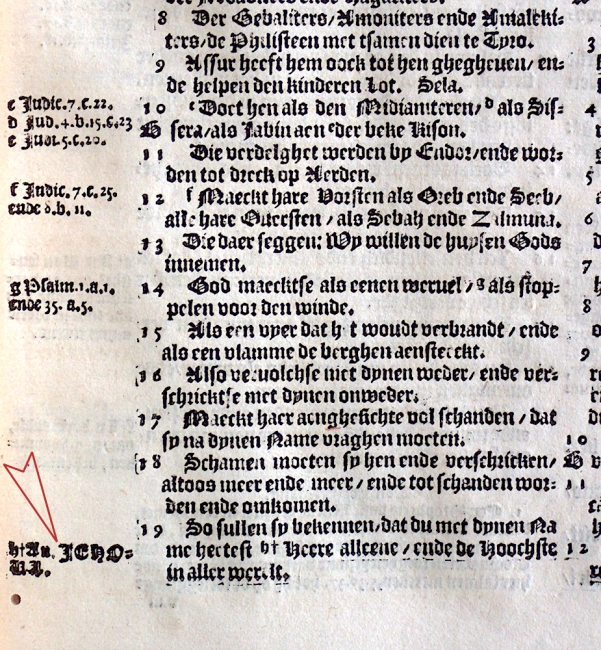 8 Der Gebaliters/Amoniters ende Amaleki-
ters/de Philisteen met tsamen dien te Tyro.
9 Assur heeft hem oock tot hen ghegheuen/en-
de helpen den kinderen Lot. Sela.
c Judic.7.c.22.
d Jud.4.b.15.c.23
e Judi.5.c.20.
10 c Doet hen als den Midianiteren/ d als Sis-
sera/als Jabin aen e der beke Kison.
11 Die verdelghet werden by Endor/ende wor-
den tot dreck op Aerden.
f Judic.7.c.25.
ende 8.b.11.
12 f Maeckt hare Vorsten als Oreb ende Seeb/
alle hare Ouersten/als Sebah ende Zalmuna.
13 Die daer seggen: Wy willen de huysen Gods
innemen.
g Psalm.1.a.1.
ende 35.a.5.
14 God maecktse als eenen weruel/ g als stop-
pelen voor den winde.
15 Als een vyer dat het woudt verbrandt/ende
als een vlamme de berghen aensteeckt.
16 Also veruolchse met dynen weder/ende ver-
schricktse met dynen onweder.
17 Maeckt haer aenghesichte vol schanden/dat
sy na dynen Name vraghen moeten.
18 Schamen moeten sy hen ende verschricken/
altoos meer ende meer/ende tot schanden wor-
den ende omkomen.
h†An. JEHO-
VA.
19 So sullen sy bekennen/dat du met dynen Na
me heetest h† Heere alleene/ende de Hoochste
in aller werelt.